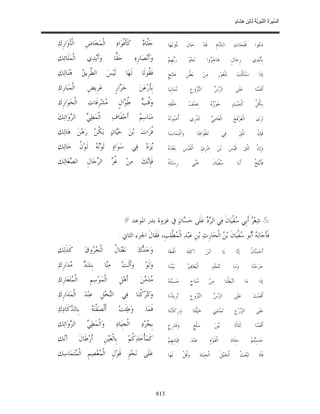 السِّيرَةُ النَّبَوِيَّةُ لِابْنِ هِشَامٍ
دَعُوا فَلَجَاتِ الشَّامِ قَدْ حَالَ دُونَهَا جِلَادٌ كَأَفْوَاهِ الْمَخَاضِ الْأَوَارِكِ
بِأَيْدِي رِجَالٍ هَاجَرُوا نَحْوَ رَبِّهِمْ وَأَنْصَارِهِ حَقًّا وَأَيْدِي الْمَلَائِكِ
إِذَا سَلَكَتْ لِلْغَوْرِ مِنْ بَطْنِ عَالِجٍ فَقُولَا لَهَا لَيْسَ الطَّرِيقُ هُنَالِكِ
أَقَمْنَا عَلَى الرَّسِّ النَّزُوعِ ثَمَانِيًا بِأَرْعَنَ جَرَّارٍ عَرِيضِ الْمَبَارِكِ
بِكُلِّ كُمَيْتٍ جَوْزُهُ نِصْفُ خَلْقِهِ وَقُبٍّ طُوَالٍ مُشْرِفَاتِ الْحَوَارِكِ
تَرَى الْعَرْفَجَ الْعَامِيَّ تَذْرِي أُصُولَهُ مَنَاسِمُ أَخْفَافِ الْمَطِيِّ الرَّوَاتِكِ
فَإِنْ نَلْقَ فِي تَطْوَافِنَا وَالْتِمَاسِنَا فُرَاتَ بْنَ حَيَّانٍ يَكُنْ رَهْنَ هَالِكِ
وَإِنْ تَلْقَ قَيْسَ بْنَ امْرِئِ الْقَيْسِ بَعْدَهُ يُزَدْ فِي سَوَادٍ لَوْنُهُ لَوْنُ حَالِكِ
فَأَبْلِغْ أَبَا سُفْيَانَ عَنِّي رِسَالَةً فَإِنَّكَ مِنْ غُرِّ الرِّجَالِ الصَّعَالِكِ
شِعْرُ أَبِي سُفْيَانَ فِي الرَّدِّ عَلَى حَسَّانٍ في غزوة بدر الموعد #
فَأَجَابَهُ أَبُو سُفْيَانَ بْنُ الْحَارِثِ بْنِ عَبْدِ الْمُطَّلِبِ، فَقَالَ الجزء الثاني
أَحَسَّانُ إِنَّا يَا ابْنَ آكِلَةِ الْفَغَا وَجَدُّكَ نَغْتَالُ الْخُرُوقَ كَذَلِكِ
خَرَجْنَا وَمَا تَنْجُو الْيَعَافِيرُ بَيْنَنَا وَلَوْ وَأَلَتْ مِنَّا بِشَدٍّ مُدَارِكِ
إِذَا مَا انْبَعَثْنَا مِنْ مُنَاخٍ حَسِبْتَهُ مُدَمَّنَ أَهْلِ الْمَوْسِمِ الْمُتَعَارِكِ
أَقَمْتَ عَلَى الرَّسِّ النَّزُوعِ تُرِيدُنَا وَتَتْرُكُنَا فِي النَّخْلِ عِنْدَ الْمَدَارِكِ
عَلَى الزَّرْعِ تَمْشِي خَيْلُنَا وَرِكَابُنَا فَمَا وَطِئَتْ أَلْصَقْنَهُ بِالدَّكَادِكِ
أَقَمْنَا ثَلَاثًا بَيْنَ سَلْعٍ وَفَارِعٍ بِجُرْدِ الْجِيَادِ وَالْمَطِيِّ الرَّوَاتِكِ
حَسِبْتُمْ جِلَادَ الْقَوْمِ عِنْدَ قِبَابِهِمْ كَمَأْخَذِكُمْ بِالْعَيْنِ أَرْطَالَ آنُكِ
فَلَا تَبْعَثْ الْخَيْلَ الْجِيَادَ وَقُلْ لَهَا عَلَى نَحْوِ قَوْلِ الْمُعْصِمِ الْمُتَمَاسِكِ
813